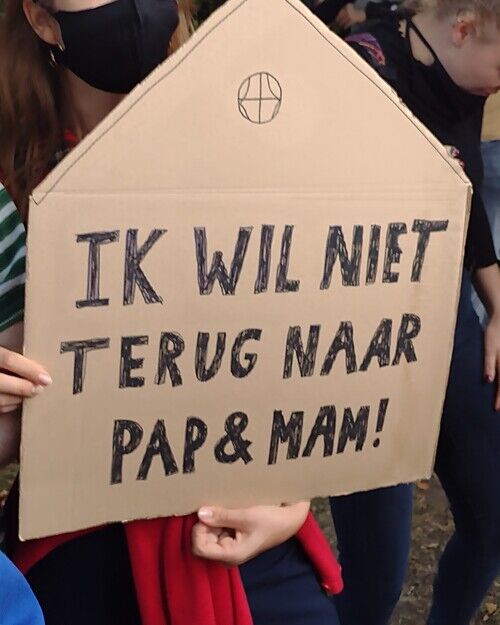 IK WIL NIET
TERUG NAAR
PAP & MAM!